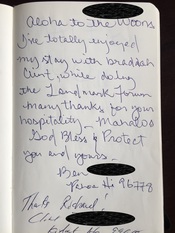 Aloha to the Woons
I've totally enjoyed
my stay with
Clint, while doing
the Landmark Forum
many thanks for your
hospitality - Mahalo
God Bless & Protect
you and yours.
Ben
Hi 96778
Thanks Richard!